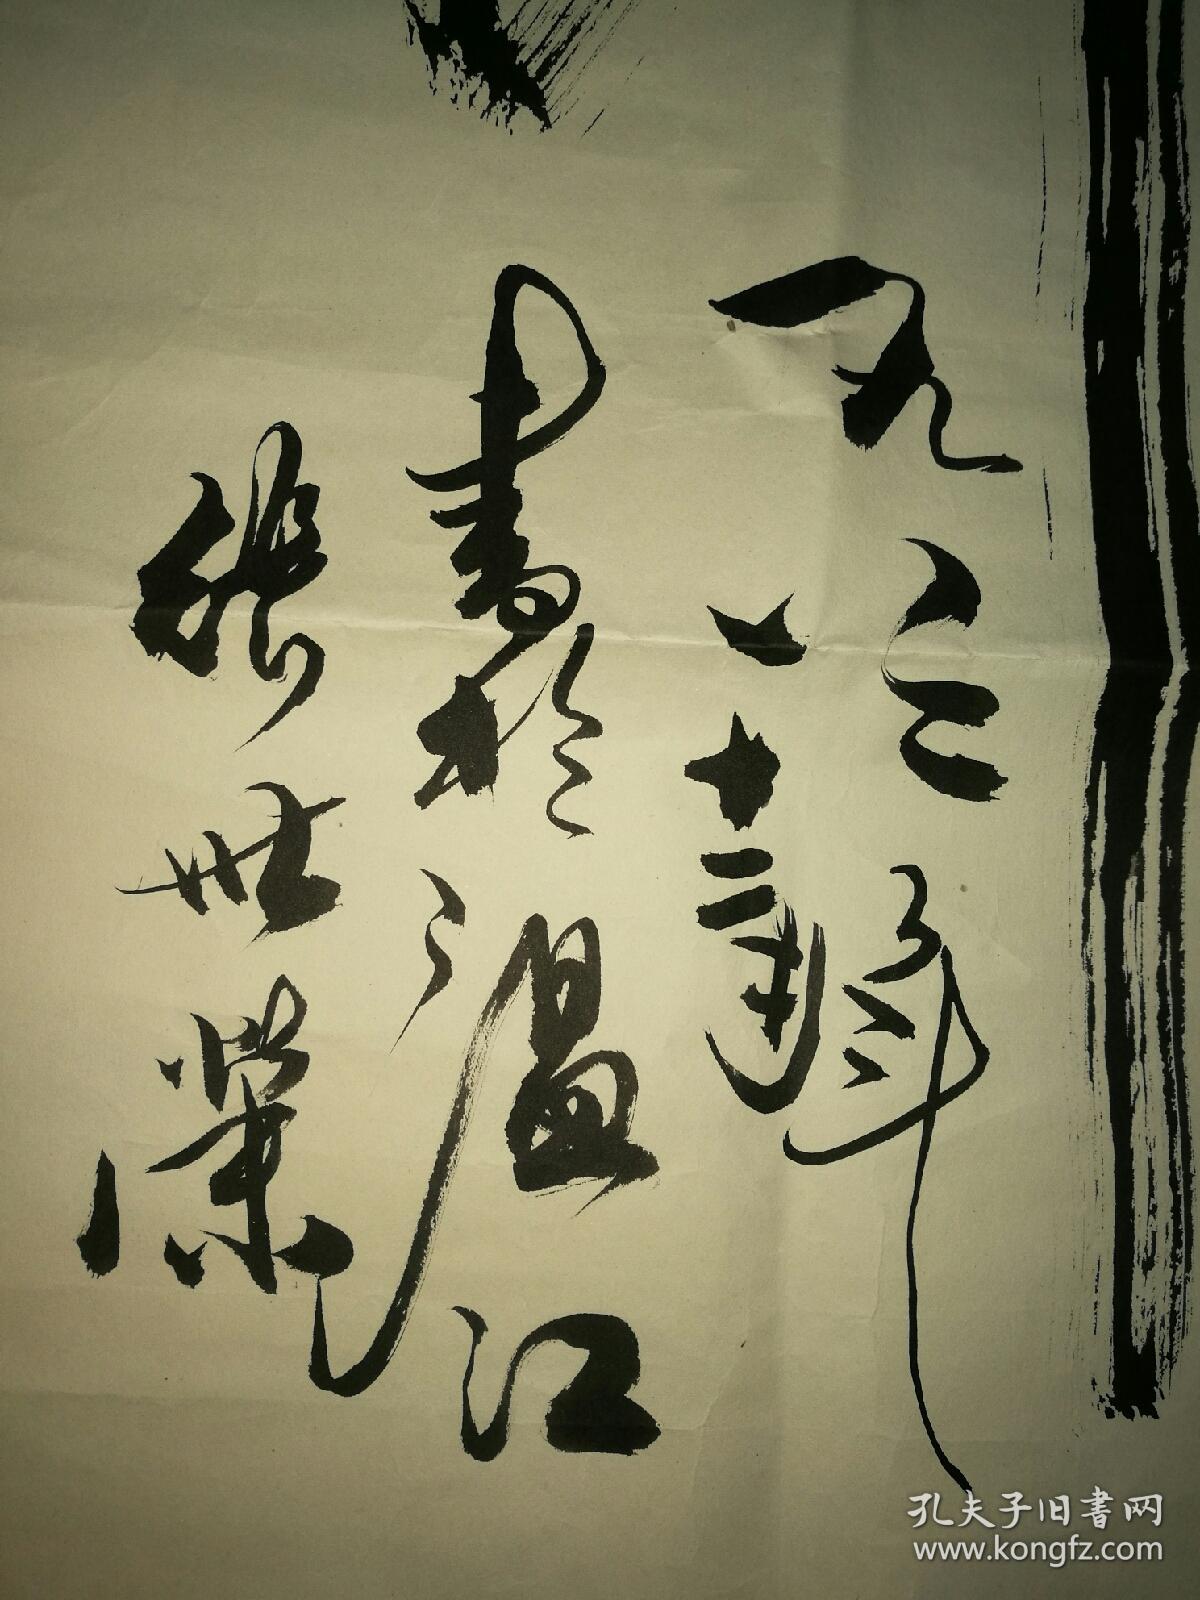 九二年
八十二叟
書於溫江
張世榮
孔夫子旧書网
www.kongfz.com